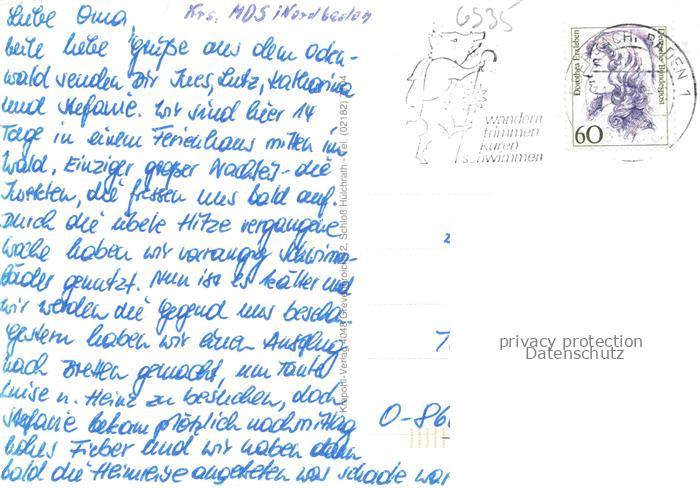 Liebe Oma,
viele liebe Grüße aus dem Oden-
wald senden Dir Ines, Lutz, Katharina
und Stefanie. Wir sind hier 14
Tage in einem Ferienhaus mitten im
Wald. Einziger großer Nachteil - die
Insekten, die fressen uns bald auf.
Durch die üble Hitze vergangene
Woche haben wir vorrangig Schwimm-
bäder genutzt. Nun ist es kälter und
wir werden die Gegend uns beschau
Gestern haben wir einen Ausflug
nach Bretten gemacht, um Tante
Luise u. Heinz zu besuchen, doch
Stefanie bekam plötzlich nachmittag
hohes Fieber und wir haben dann
bald die Heimreise angetreten was schade war
Krs. MOS
6935
wandern
trimmen
kuren
schwimmen
Dorothea Erxleben
Deutsche Bundespost
60
Krapohl-Verlag, 4048 Grevenbroich 12, Schloß Hülchrath - Tel. (02182)
privacy protection
Datenschutz
O-86